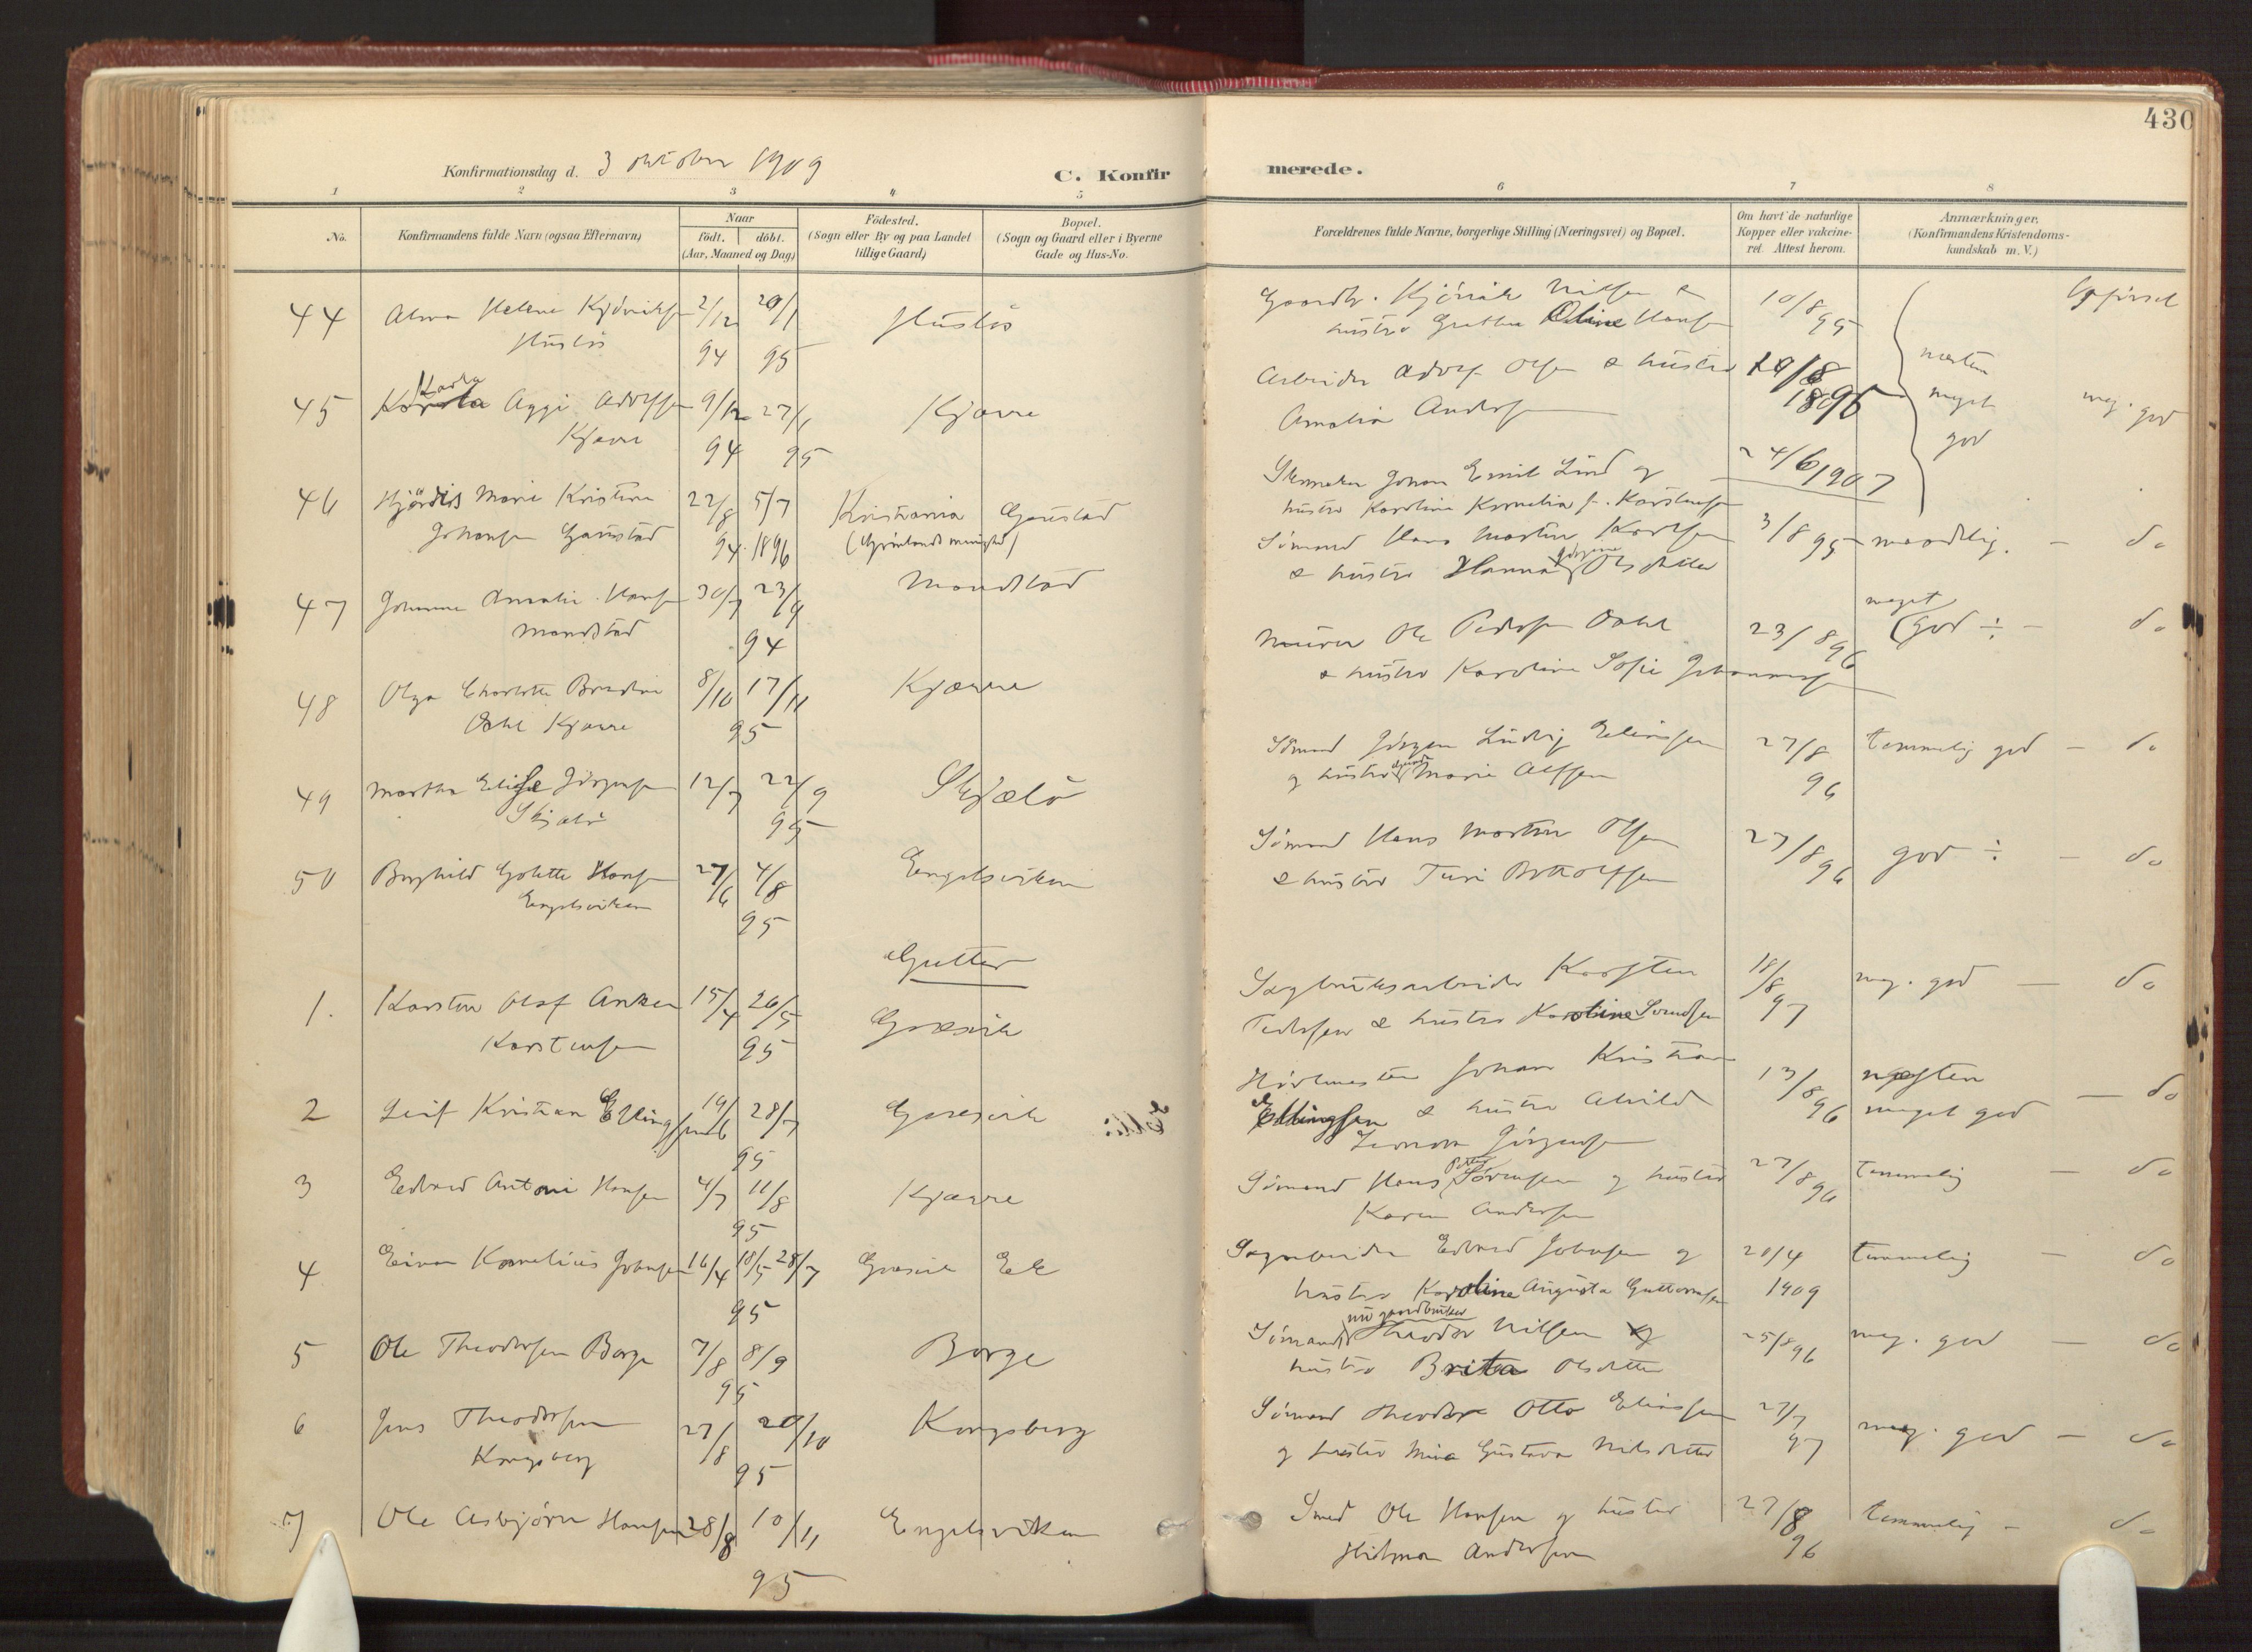 430
Konfirmationsdag d. 3 oktober 1909
C. Konfirmerede.
1 2 3 4 5 6 7 8
No.
Konfirmandens fulde Navn (ogsaa Efternavn)
Naar
født. døbt.
(Aar, Maaned og Dag)
Födested.
(Sogn eller By og paa Landet
tillige Gaard)
Bopæl.
(Sogn og Gaard eller i Byerne
Gade og Hus-No.
Forældrenes fulde Navne, borgerlige Stilling (Næringsvei) og Bopæl.
Om havt de naturlige
Kopper eller vakcine-
ret Attest herom.
Anmærkninger.
(Konfirmandens Kristendoms-
kundskab m. V.)
44 Alma Helene Kjöniksen 2/12 20/1 Huslös Gaardbr. Kjönik Nilsen & 10/8 Opförsel
Huslös 94 95 hustru Grethe Oline Hansen 95
45 Karla Aggi Adolfsen 9/12 27/1 Kjærre Arbeider Adolf Olsen & hustru 18/8 næsten meget god meg. god
Kjærre 94 95 Amalia Andersen 1896
46 Hjördis Marie Kristine 22/8 5/7 Kristiania Gaustad Skomaker Johan Emil Lind og 24/6 1907
Johansen Gaustad 94 1896 (Grönlands menighed) hustru Karoline Kornelia f. Karstensen
47 Johanne Amalie Hansen 30/7 23/9 Mondstad Sömand Hans Martin Karlsen 3/8 95 maadelig. — do
Mondstad 94 & hustru Hanna Jörgine Olsdatter
48 Olga Charlotte Bredine 8/10 17/11 Kjærre Murer Ole Pedersen Dahl 23/8 96 meget (god ÷ — do
Dahl Kjærre 95 & hustru Karoline Sofie Johannessen
49 Martha Elise Jörgensen 12/7 22/9 Skjælö Sömand Jörgen Ludvig Eliassen 27/8 temmelig god — do
Skjælö 95 og hustru Marie Olffsen 96
50 Borghild Golette Hansen 27/6 4/8 Engelsviken Sömand Hans Martin Olsen 27/8 god ÷ — do
Engelsviken 95 & hustru Turi Bottolfsen 96
Gutter
1. Karsten Olaf Anker 15/4 26/5 Græsvik Sagbruksarbeider Karsten 18/8 meg. god — do
Karstensen 95 Pedersen & hustru Karoline Svendsen 97
2 Leif Kristian Ellingsen 19/6 28/7 Græsvik Hövlmester Johan Kristian 13/8 næsten — do
95 Ellingsen & hustru Alvild 96 meget god
Leonora Jörgensen
3 Edvard Antoni Hansen 4/7 11/8 Kjærre Sömand Hans Petter Sörensen og hustru 27/8 96 temmelig — do
95 Karen Andersen
4 Einar Kornelius Johnsen 16/4 18/5 28/7 Græsvik Ek Sagarbeider Edvard Johnsen og 20/4 temmelig — do
95 hustru Karoline Augusta Guttormsen 1909
5 Ole Theodorsen Borge 7/8 8/9 Borge Sömand nu gaardbruker Theodor Nilsen og 25/8 96 meg. god — do
95 hustru Brita Olsdatter
6 Jens Theodorsen 27/8 20/10 Kongsberg Sömand Theodor Otto Eliassen 27/7 meg. god — do
Kongsberg 95 og hustru Mina Gustava Nilsdatter 97
7 Ole Asbjörn Hansen 28/8 10/11 Engelsviken Smed Ole Hansen og hustru 27/8 temmelig — do
95 Hilma Andersen 96